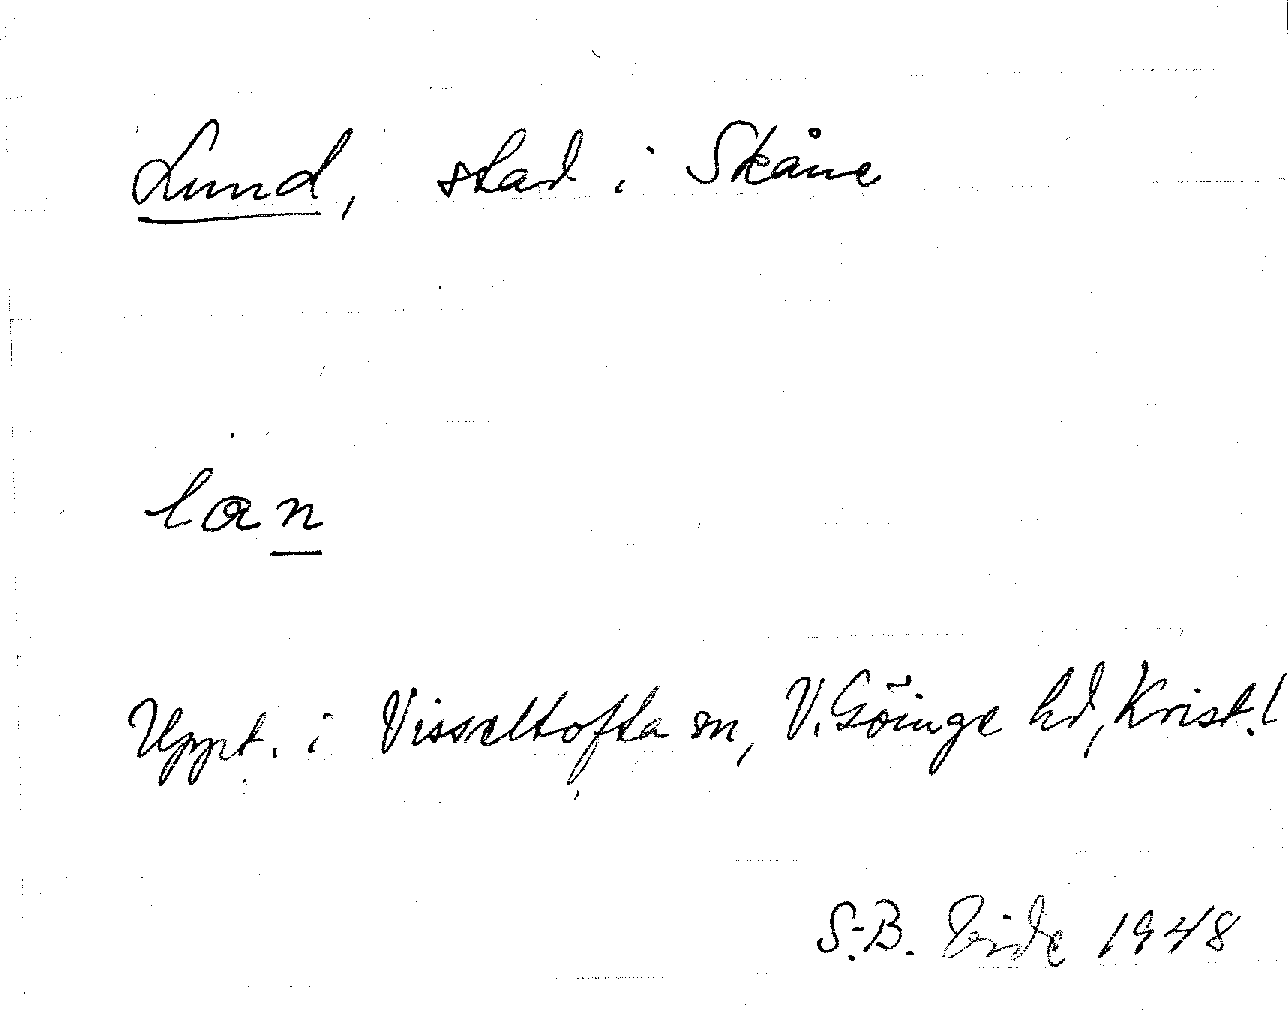 Lund, stad i Skåne
lan
Uppt. i Visseltofta sn, V. Göinge hd, Krist. l
S.-B. Vide 1948